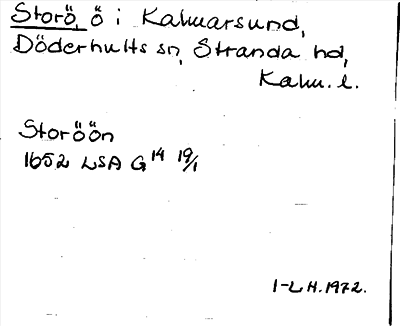 Storö, ö i Kalmarsund,
Döderhults sn, Stranda hd,
Kalm. l.
Storöön
1652 LSA G14 19/1
I-L H. 1972.